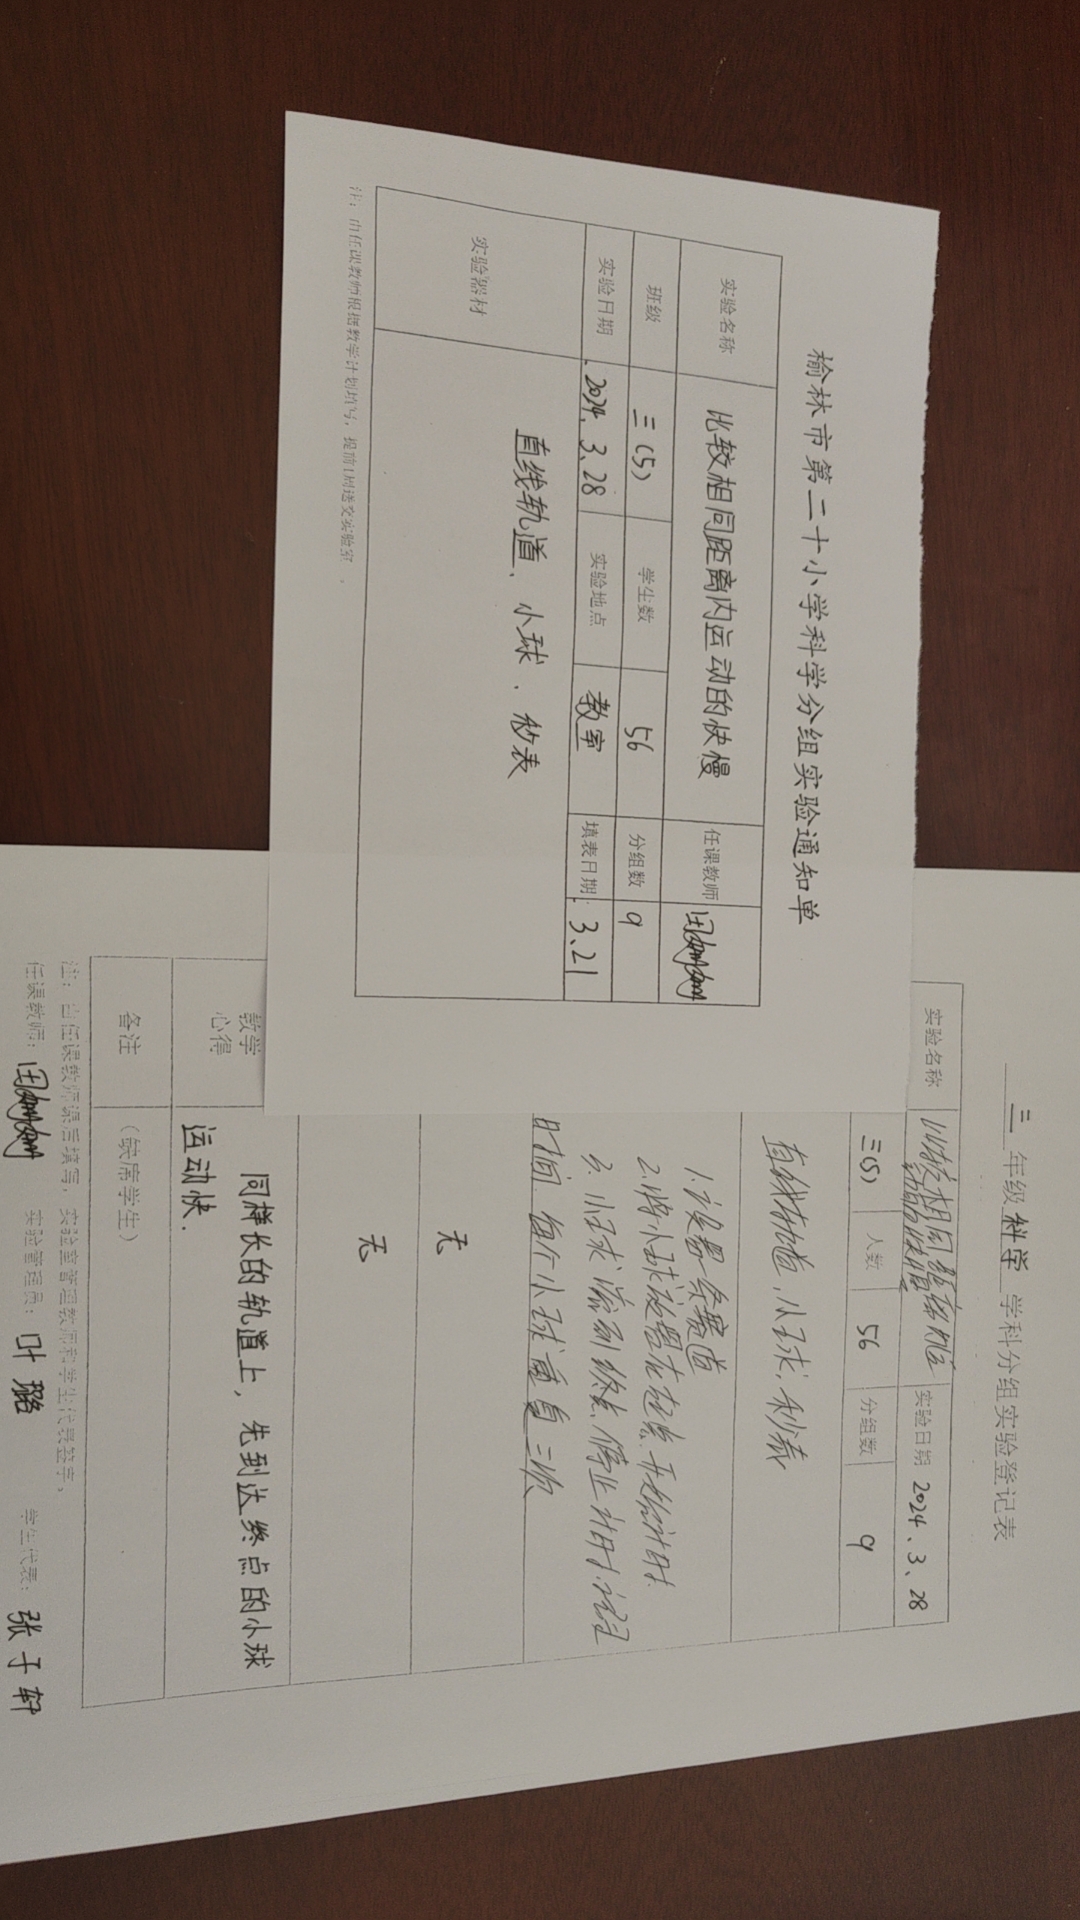 榆林市第二十小学科学分组实验通知单
实验名称 比较相同距离内运动的快慢 任课教师
班级 三(5) 学生数 56 分组数 9
实验日期 2024.3.28 实验地点 教室 填表日期 3.21
实验器材 直线轨道、小球、秒表
注：由任课教师根据教学计划填写，提前1周送交实验室。
三年级科学学科分组实验登记表
实验名称 比较相同距离内运动的快慢 实验日期 2024.3.28
三(5) 人数 56 分组数 9
直线轨道、小球、秒表
1.设置一条赛道
2.将小球放置在起点,开始计时.
3.小球滚到终点,停止计时.记录
时间.每个小球重复三次
无
无
教学心得 同样长的轨道上，先到达终点的小球
运动快.
备注 （缺席学生）
注：由任课教师课后填写，实验室管理教师和学生代表签字。
任课教师： 实验管理员：叶璐 学生代表：张子轩